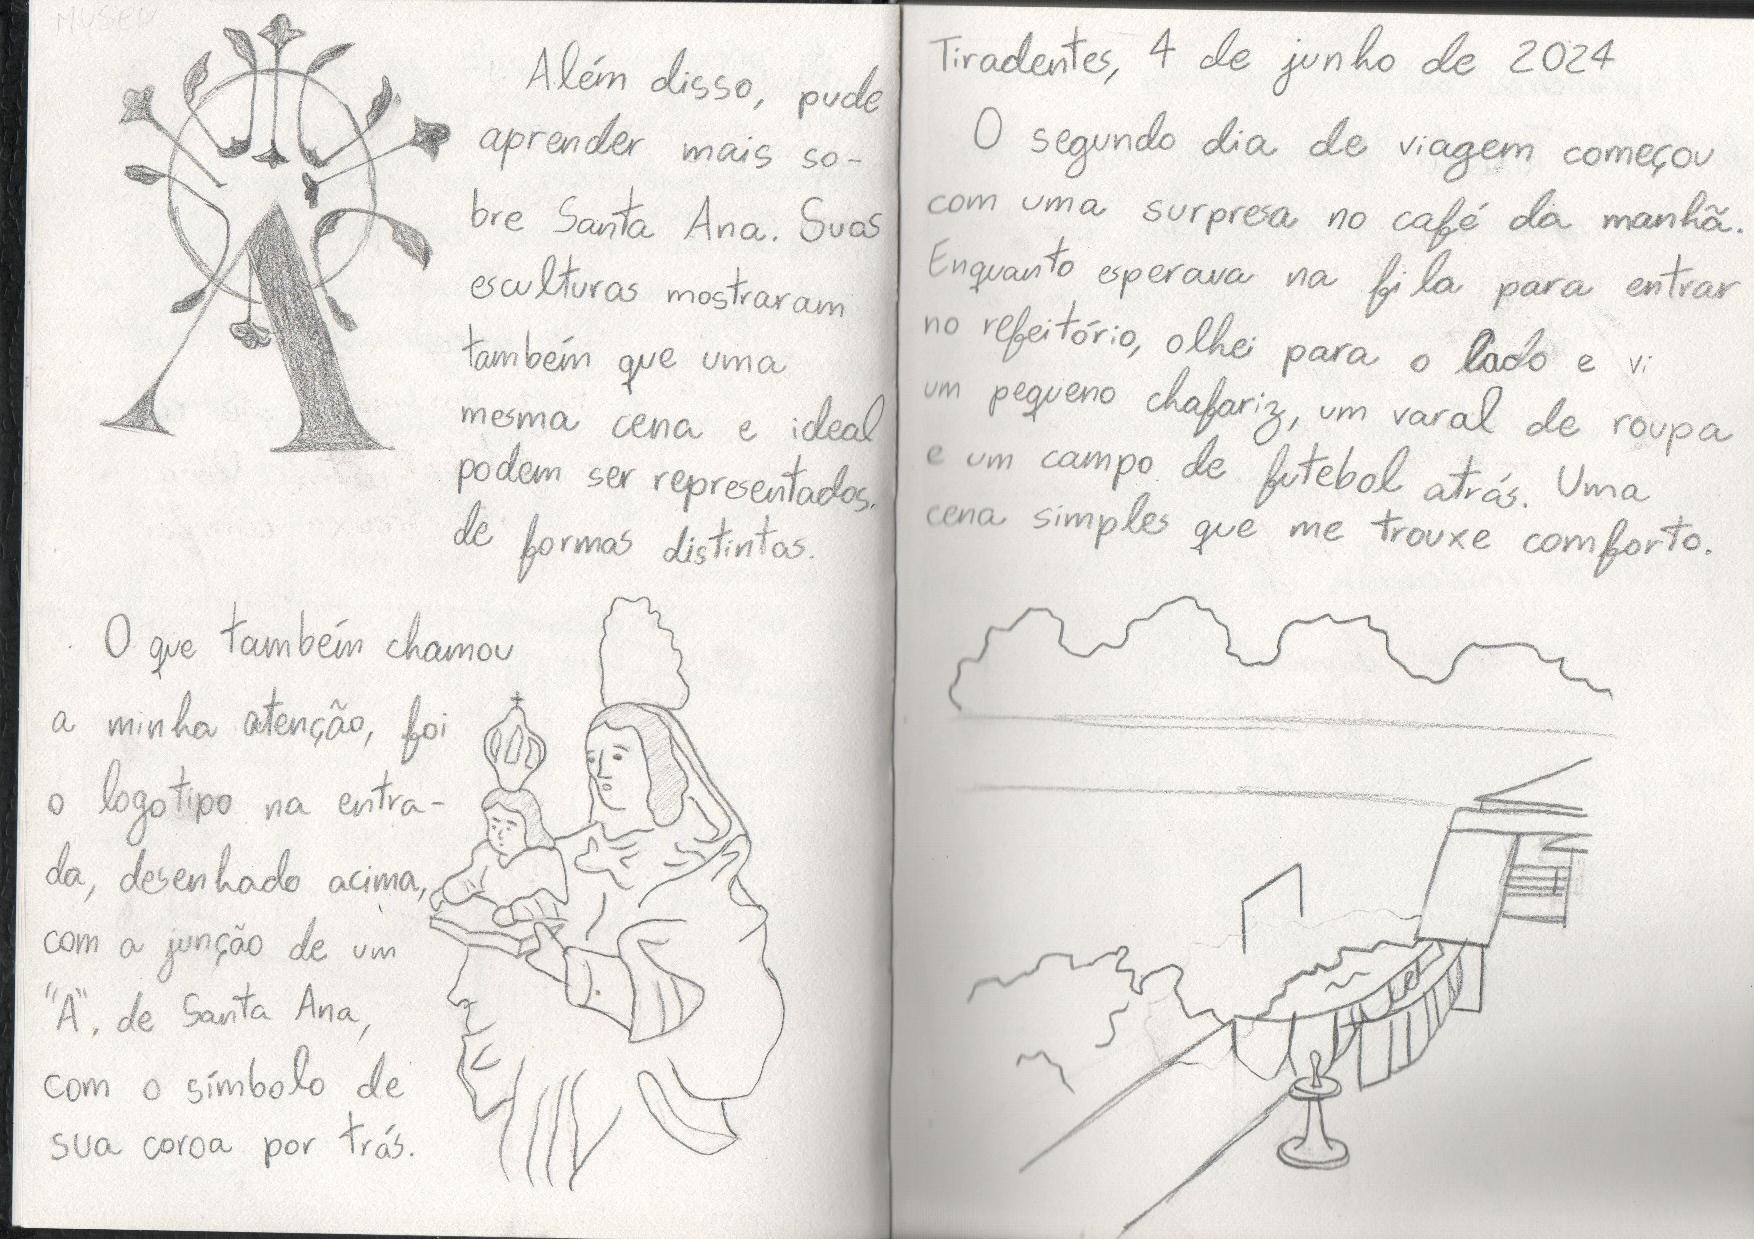 MUSEU
Além disso, pude
aprender mais so-
bre Santa Ana. Suas
esculturas mostraram
também que uma
mesma cena e ideal
podem ser representados
de formas distintas.
O que também chamou
a minha atenção, foi
o logotipo na entra-
da, desenhado acima,
com a junção de um
"A", de Santa Ana,
com o símbolo de
sua coroa por trás.
Tiradentes, 4 de junho de 2024
O segundo dia de viagem começou
com uma surpresa no café da manhã.
Enquanto esperava na fila para entrar
no refeitório, olhei para o lado e vi
um pequeno chafariz, um varal de roupa
e um campo de futebol atrás. Uma
cena simples que me trouxe comforto.